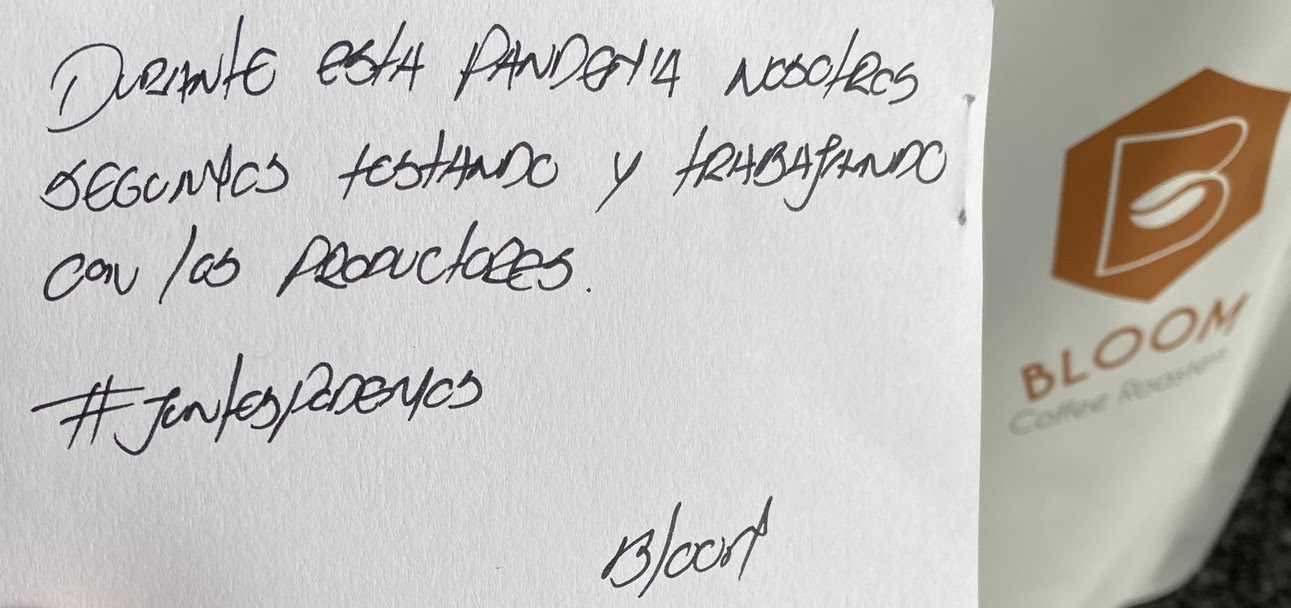 Durante esta pandemia nosotros
seguimos testando y trabajando
con los productores.
#juntospodemos
Bloom
B
BLOOM
Coffee Roasters